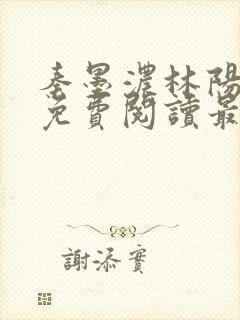 秦墨濃林陽
免費閱讀最
謝添寶